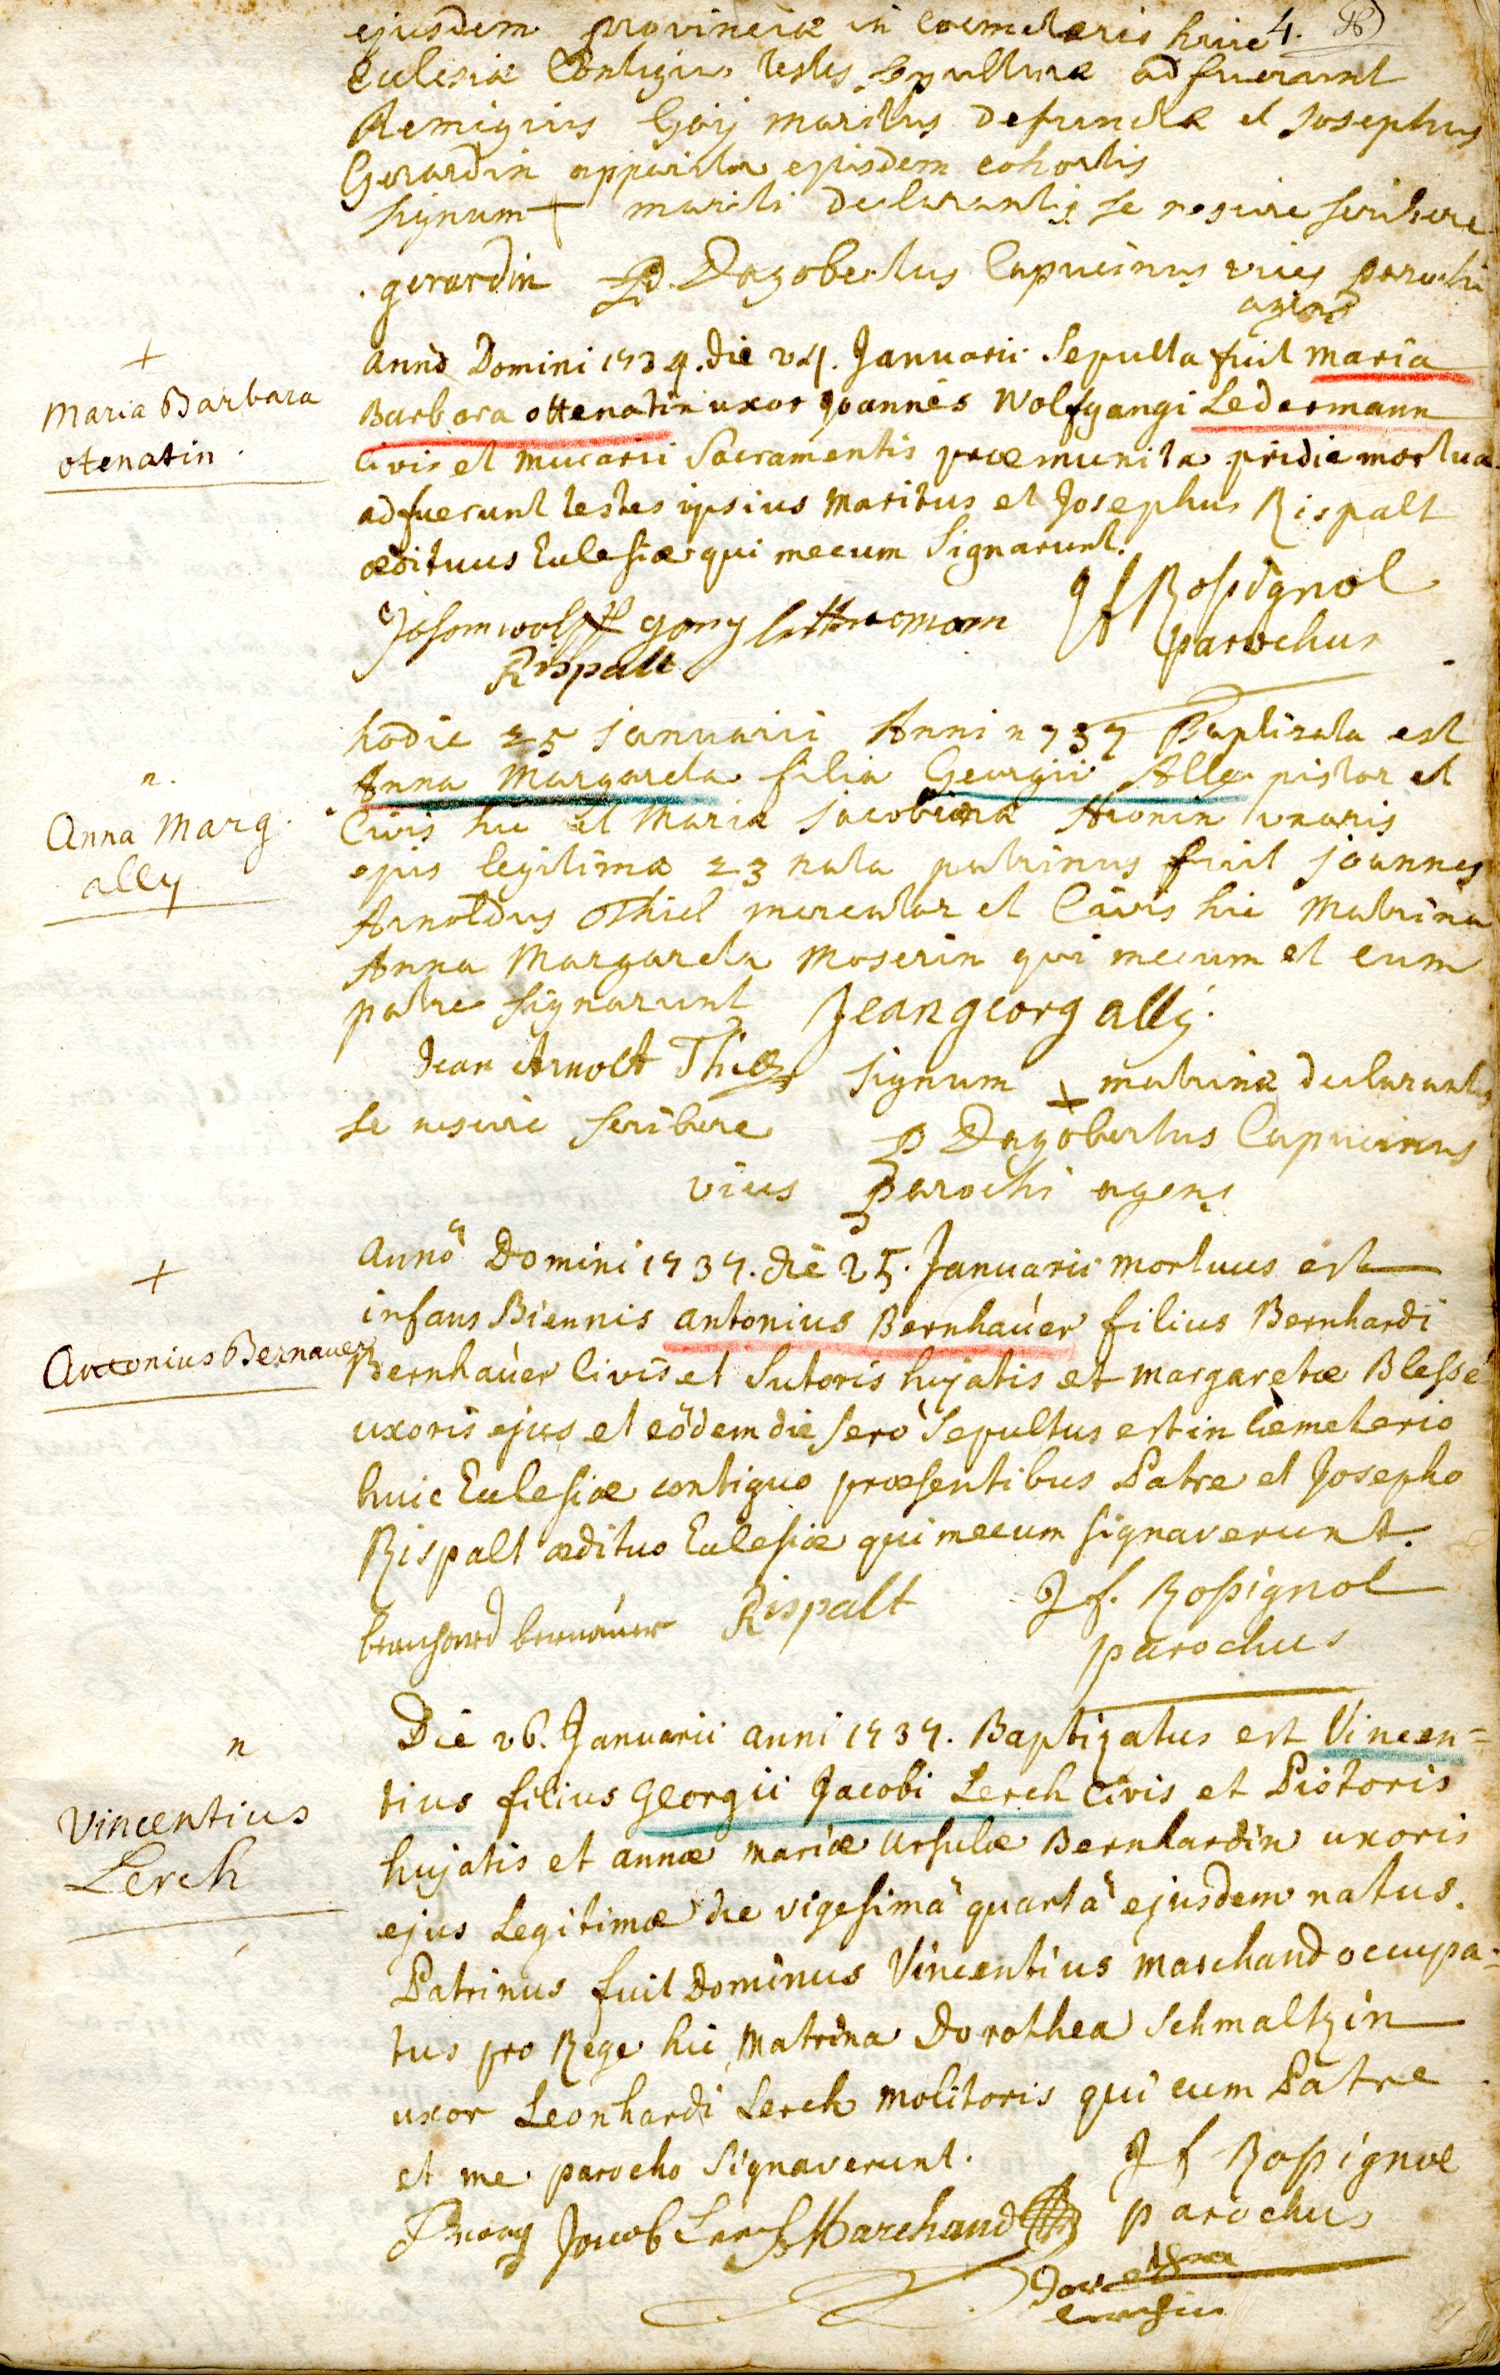 4.
ejusdem provinciæ in coemeterio huic
Eclesiæ Contiguo testes sepulturæ adfuerunt
Remigius Goÿ maritus defunctæ et Josephus
Gerardin apparitor ejusdem cohortis
signum + mariti declarantis se nescire scribere
gerardin P Dagobertus Capucinus vices parochi
agens
+
Maria Barbara
otenatin.
anno Domini 1737. die 24. Januarii Sepulta fuit maria
Barbara ottenatin uxor Joannes Wolfgangi Ledermann
Civis et murarii Sacramentis præmunita pridie mortua
adfuerunt testes ipsius maritus et Josephus Rispalt
ædituus Eclesiæ qui mecum Signarunt.
Jf Rosignol
parochus
Rispalt
hodie 25 januarii Anni 1737 Baptizata est
n.
Anna Marg.
ally
Anna Margareta filia Georgii Ally pistor et
Civis hic et Mariæ Jacobinæ uxoris
ejus legitimæ 23 nata patrinus fuit joannes
Arnoldus Thiel mercator et Civis hic Matrina
Anna Margareta Moserin qui mecum et cum
patre signarunt Jean georg allÿ.
Jean Arnolt Thiel signum + matrinæ declarantis
se nescire scribere P Dagobertus Capucinus
vices parochi agens
+
Antonius Bernauer
Anno Domini 1737. die 25. Januarii mortuus est
infans Biennis antonius Bernhauer filius Bernhardi
Bernhauer Civis et Sutoris hujatis et margaretæ Blesse
uxoris ejus et eodem die sero Sepultus est in Cemeterio
huic Eclesiæ contiguo præsentibus Patre et Josepho
Rispalt ædituo Eclesiæ qui mecum signaverunt.
bernhard bernauer Rispalt J f. Rosignol
parochus
n
Vincentius
Lerch
Die 26. Januarii anni 1737. Baptizatus est Vincen=
tius filius Georgii Jacobi Lerch Civis et Pistoris
hujatis et annæ mariæ ursulæ Bernhardin uxoris
ejus Legitimæ die vigesima quarta ejusdem natus.
Patrinus fuit Dominus Vincentius marchand occupa=
tus pro Rege hic, Matrina Dorothea Schmaltzin
uxor Leonhardi Lerch molitoris qui cum Patre
et me parocho Signaverunt. J f Rosignol
Jacob Lerch Marchand parochus